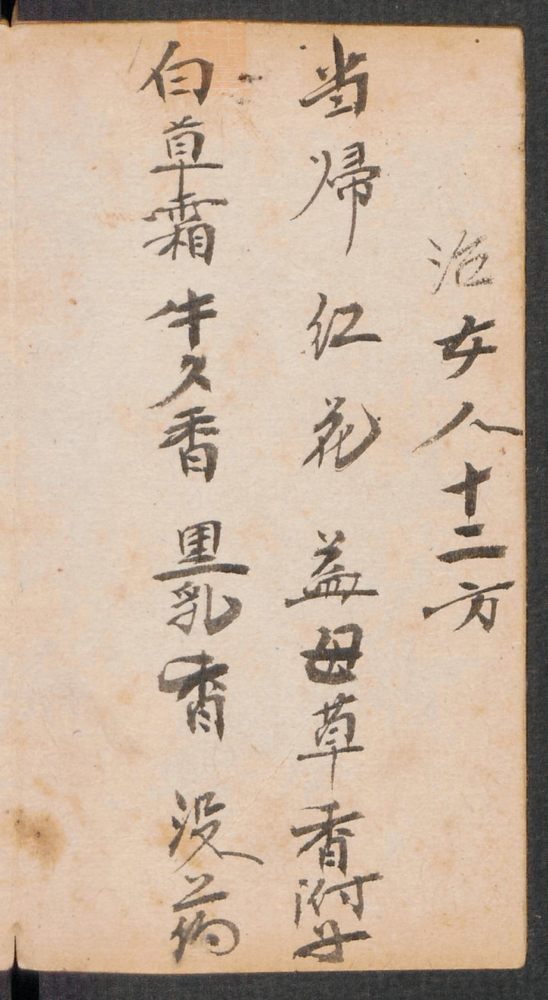 治女人十二方
当帰 红花 益母草 香附子
白草霜 牛夕香 黒乳香 没药